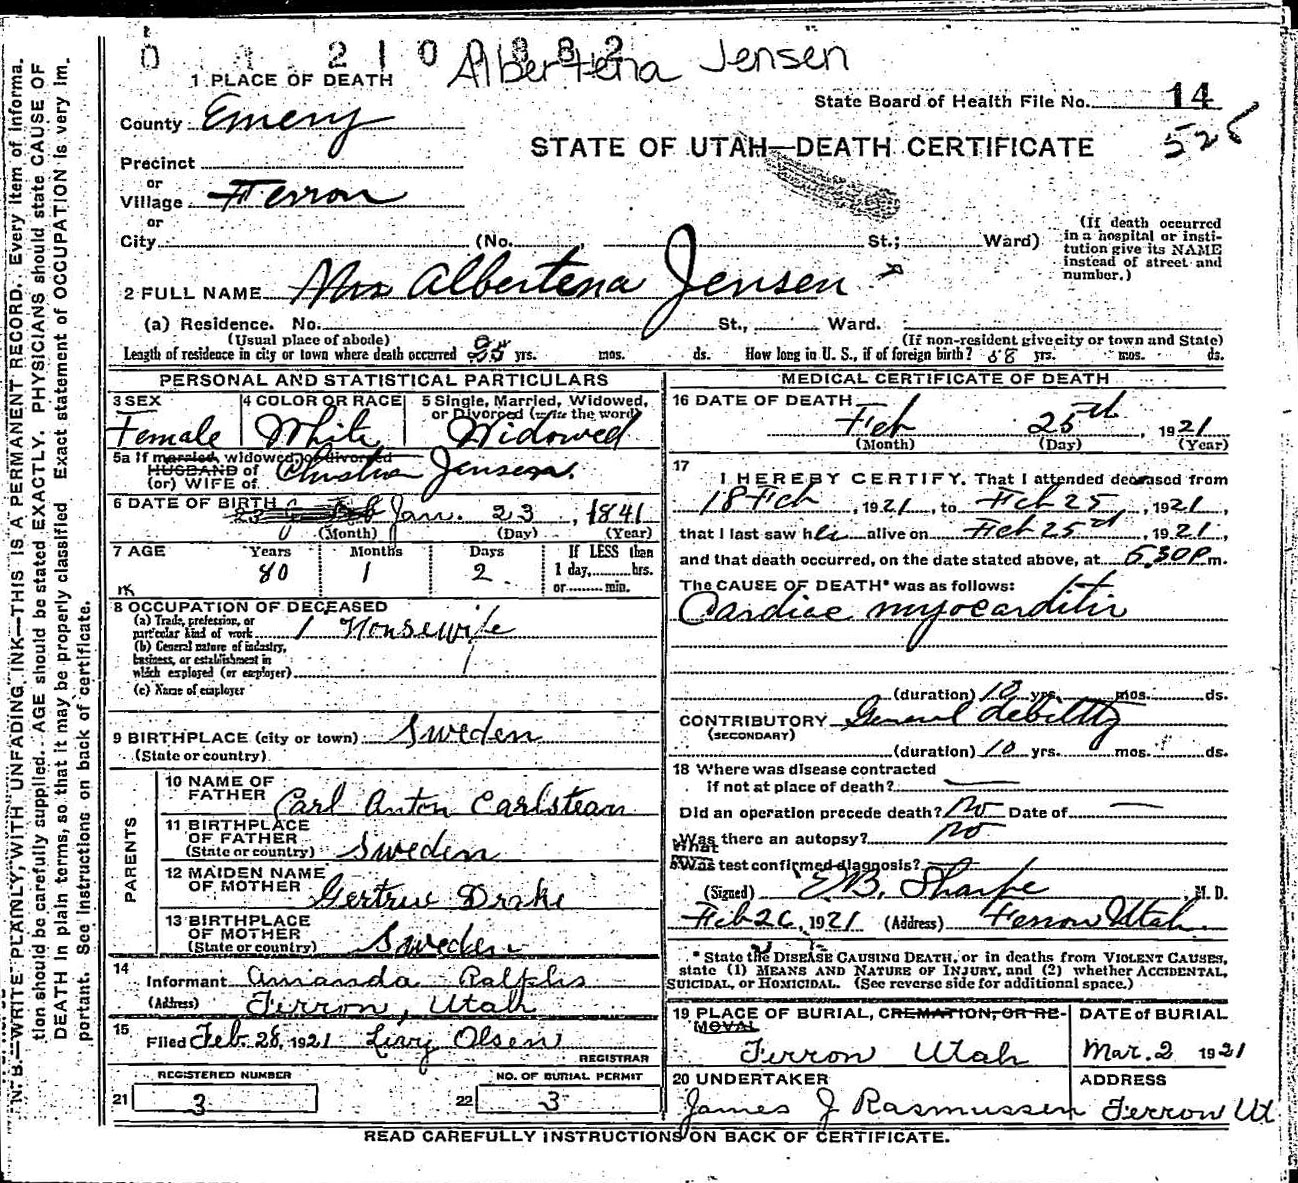 0 1 2 1 0 0 8 8 2 Albertena Jensen
1 PLACE OF DEATH
State Board of Health File No. 14
County Emery
525
STATE OF UTAH—DEATH CERTIFICATE
Precinct
or
Village Ferron
or
City (No. St.; Ward)
(If death occurred in a hospital or institution give its NAME instead of street and number.)
2 FULL NAME Mrs Albertena Jensen
(a) Residence. No. St., Ward.
(Usual place of abode) (If non-resident give city or town and State)
Length of residence in city or town where death occurred yrs. mos. ds. How long in U. S., if of foreign birth? 58 yrs. mos. ds.
PERSONAL AND STATISTICAL PARTICULARS
3 SEX 4 COLOR OR RACE 5 Single, Married, Widowed, or Divorced (write the word)
Female White Widowed
5a If married, widowed, or divorced
HUSBAND of
(or) WIFE of Jensen.
6 DATE OF BIRTH Jan. 23, 1841
(Month) (Day) (Year)
7 AGE Years Months Days If LESS than
80 1 2 1 day, hrs.
or min.
8 OCCUPATION OF DECEASED
(a) Trade, profession, or
particular kind of work Housewife
(b) General nature of industry,
business, or establishment in
which employed (or employer)
(c) Name of employer
9 BIRTHPLACE (city or town) Sweden
(State or country)
PARENTS
10 NAME OF
FATHER Carl Anton Carlstean
11 BIRTHPLACE
OF FATHER
(State or country) Sweden
12 MAIDEN NAME
OF MOTHER Gertrue Drake
13 BIRTHPLACE
OF MOTHER
(State or country) Sweden
14
Informant Amanda Ralphs
(Address) Ferron, Utah
15
Filed Feb. 28, 1921 Livy Olsen
REGISTRAR
REGISTERED NUMBER NO. OF BURIAL PERMIT
21 3 22 3
MEDICAL CERTIFICATE OF DEATH
16 DATE OF DEATH
Feb 25th, 1921
(Month) (Day) (Year)
17
I HEREBY CERTIFY. That I attended deceased from
18 Feb, 1921, to Feb 25, 1921,
that I last saw her alive on Feb 25th, 1921,
and that death occurred, on the date stated above, at 6.30 P m.
The CAUSE OF DEATH* was as follows:
Cardiac myocarditis
(duration) 10 yrs. mos. ds.
CONTRIBUTORY General debility
(SECONDARY)
(duration) 10 yrs. mos. ds.
18 Where was disease contracted
if not at place of death?
Did an operation precede death? No Date of
Was there an autopsy? No
What
Was test confirmed diagnosis?
(Signed) E.B. Sharpe M. D.
Feb 26, 1921 (Address) Ferron Utah
* State the DISEASE CAUSING DEATH, or in deaths from VIOLENT CAUSES,
state (1) MEANS AND NATURE OF INJURY, and (2) whether ACCIDENTAL,
SUICIDAL, or HOMICIDAL. (See reverse side for additional space.)
19 PLACE OF BURIAL, CREMATION, OR RE-
MOVAL
DATE of BURIAL
Ferron Utah Mar. 2 1921
20 UNDERTAKER ADDRESS
James J Rasmussen Ferron Ut
READ CAREFULLY INSTRUCTIONS ON BACK OF CERTIFICATE.
N. B.—WRITE PLAINLY, WITH UNFADING INK—THIS IS A PERMANENT RECORD. Every item of informa-
tion should be carefully supplied. AGE should be stated EXACTLY. PHYSICIANS should state CAUSE OF
DEATH in plain terms, so that it may be properly classified. Exact statement of OCCUPATION is very im-
portant. See instructions on back of certificate.